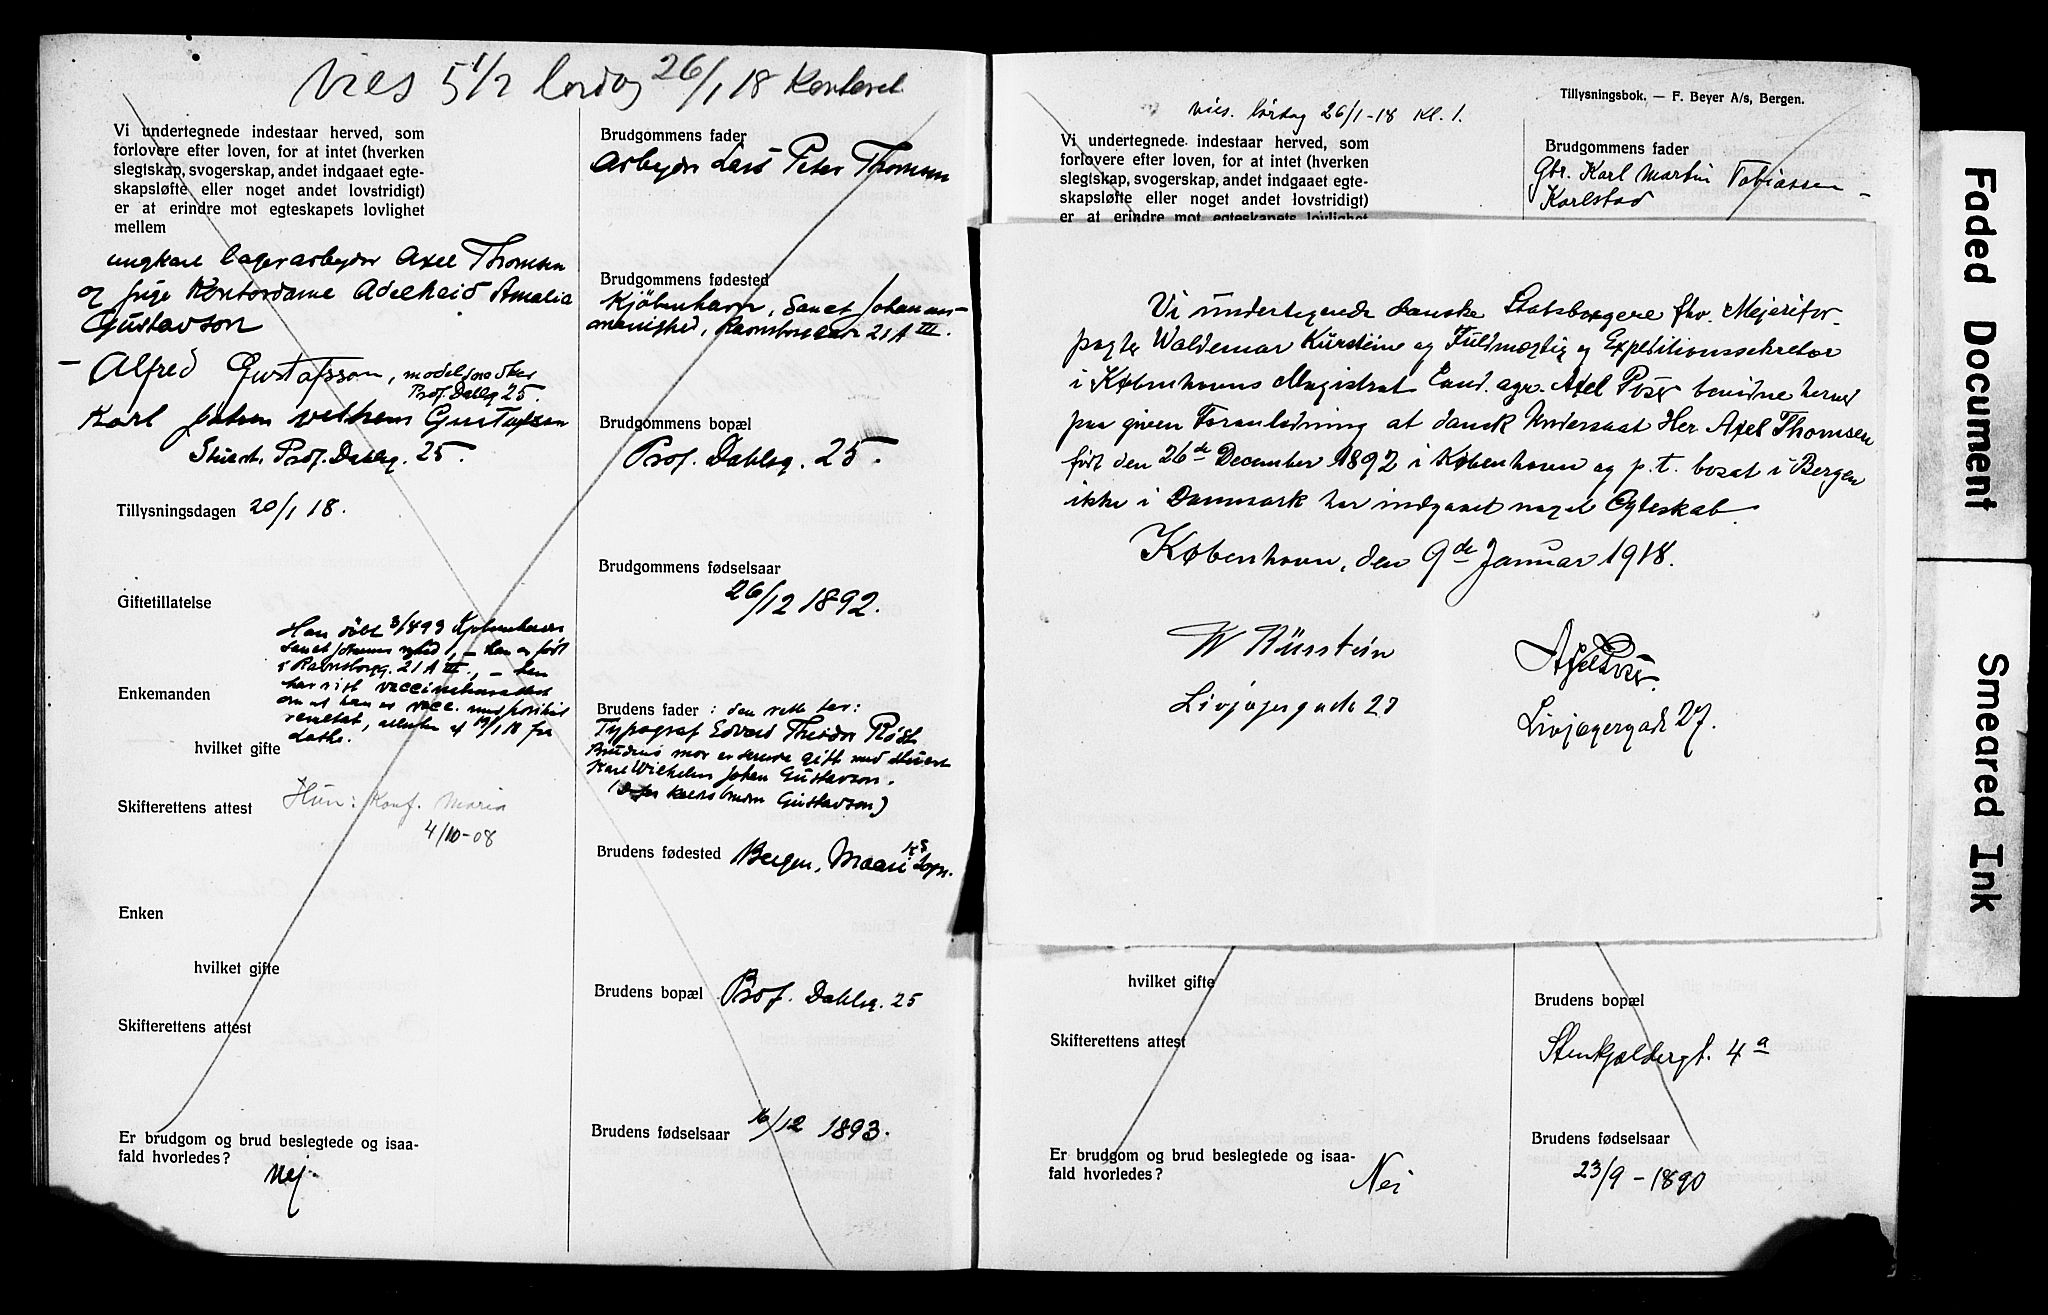 Vies 5 1/2 lørdag 26/1 18 Kontoret
Vi undertegnede indestaar herved, som
forlovere efter loven, for at intet (hverken
slegtskap, svogerskap, andet indgaaet egte-
skapsløfte eller noget andet lovstridigt)
er at erindre mot egteskapets lovlighet
mellem
ungkarl lagerarbejder Axel Thomsen
og pige Kontordame Adelhaid Amalia
Gustavson
- Alfred Gustafsson, modelsnedker
Prof. Dahlsg 25.
Karl Johan Vilhem Gustafsson
Stuert. Prof. Dahlsg. 25.
Tillysningsdagen 20/1 18.
Giftetillatelse
Han døbt 3/4 93 Kjøbenhavn
Sanct Johannes menighed, - han er født
i Ravnsborgg. 21 A III., - han
har vist vaccineharattest
om at han er vacc. med positivt
resultat, attesten af 19/1 18 fra
Enkemanden
hvilket gifte
Skifterettens attest
Hun: Konf. Maria
4/10-08
Enken
hvilket gifte
Skifterettens attest
Er brudgom og brud beslegtede og isaa-
fald hvorledes?
Nej.
Brudgommens fader
Arbejder Lars Peter Thomsen
Brudgommens fødested
Kjøbenhavn, Sanct Johannes-
menighed, Ravnsborggade 21 A III.
Brudgommens bopæl
Prof. Dahlsg. 25.
Brudgommens fødselsaar
26/12 1892.
Brudens fader : den rette far:
Typograf Edvard Theodor Röst
Brudens mor er senere gift med stuert
Karl Wilhelm Johan Gustavson.
(derfor kaldes bruden Gustavson)
Brudens fødested Bergen, Mariæ Ks Sogn.
Brudens bopæl Prof. Dahlsg. 25
Brudens fødselsaar 16/12 1893.
Tillysningsbok. — F. Beyer A/s, Bergen.
Vies. lørdag 26/1-18 Kl. 1.
Vi undertegnede indestaar herved, som
forlovere efter loven, for at intet (hverken
slegtskap, svogerskap, andet indgaaet egte-
skapsløfte eller noget andet lovstridigt)
er at erindre mot egteskapets lovlighet
Brudgommens fader
Gbr. Karl Martin Tobiassen -
Karlstad
Vi undertegnede danske Statsborgere fhv. Mejerifor-
pagter Waldemar Kürstein og Fuldmægtig og Expeditionssekretær
i Københavns Magistrat Cand. agr. Axel Poser bevidne herved
paa given Foranledning at dansk Undersaat Her Axel Thomsen
født den 26de December 1892 i København og p. t. bosat i Bergen
ikke i Danmark har indgaaet noget Egteskab.
København, den 9de Januar 1918.
W Kürstein
Livjægergade 27
Axel Poser.
Livjægergade 27.
hvilket gifte
Skifterettens attest
Er brudgom og brud beslegtede og isaa-
fald hvorledes?
Nei
Brudens bopæl
Stenkjældergt. 4a
Brudens fødselsaar
23/9 - 1890
Faded Document
Smeared Ink